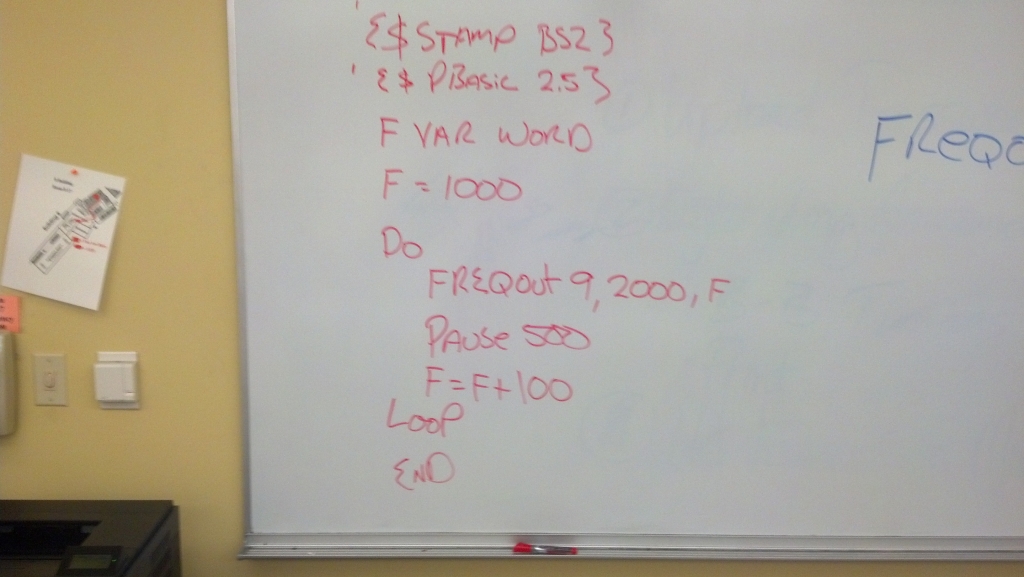 ' {$STAMP BS2}
' {$ PBasic 2.5}
F VAR WORD
F = 1000
Do
FREQout 9, 2000, F
PAUSE 500
F = F + 100
LOOP
END
FReqo